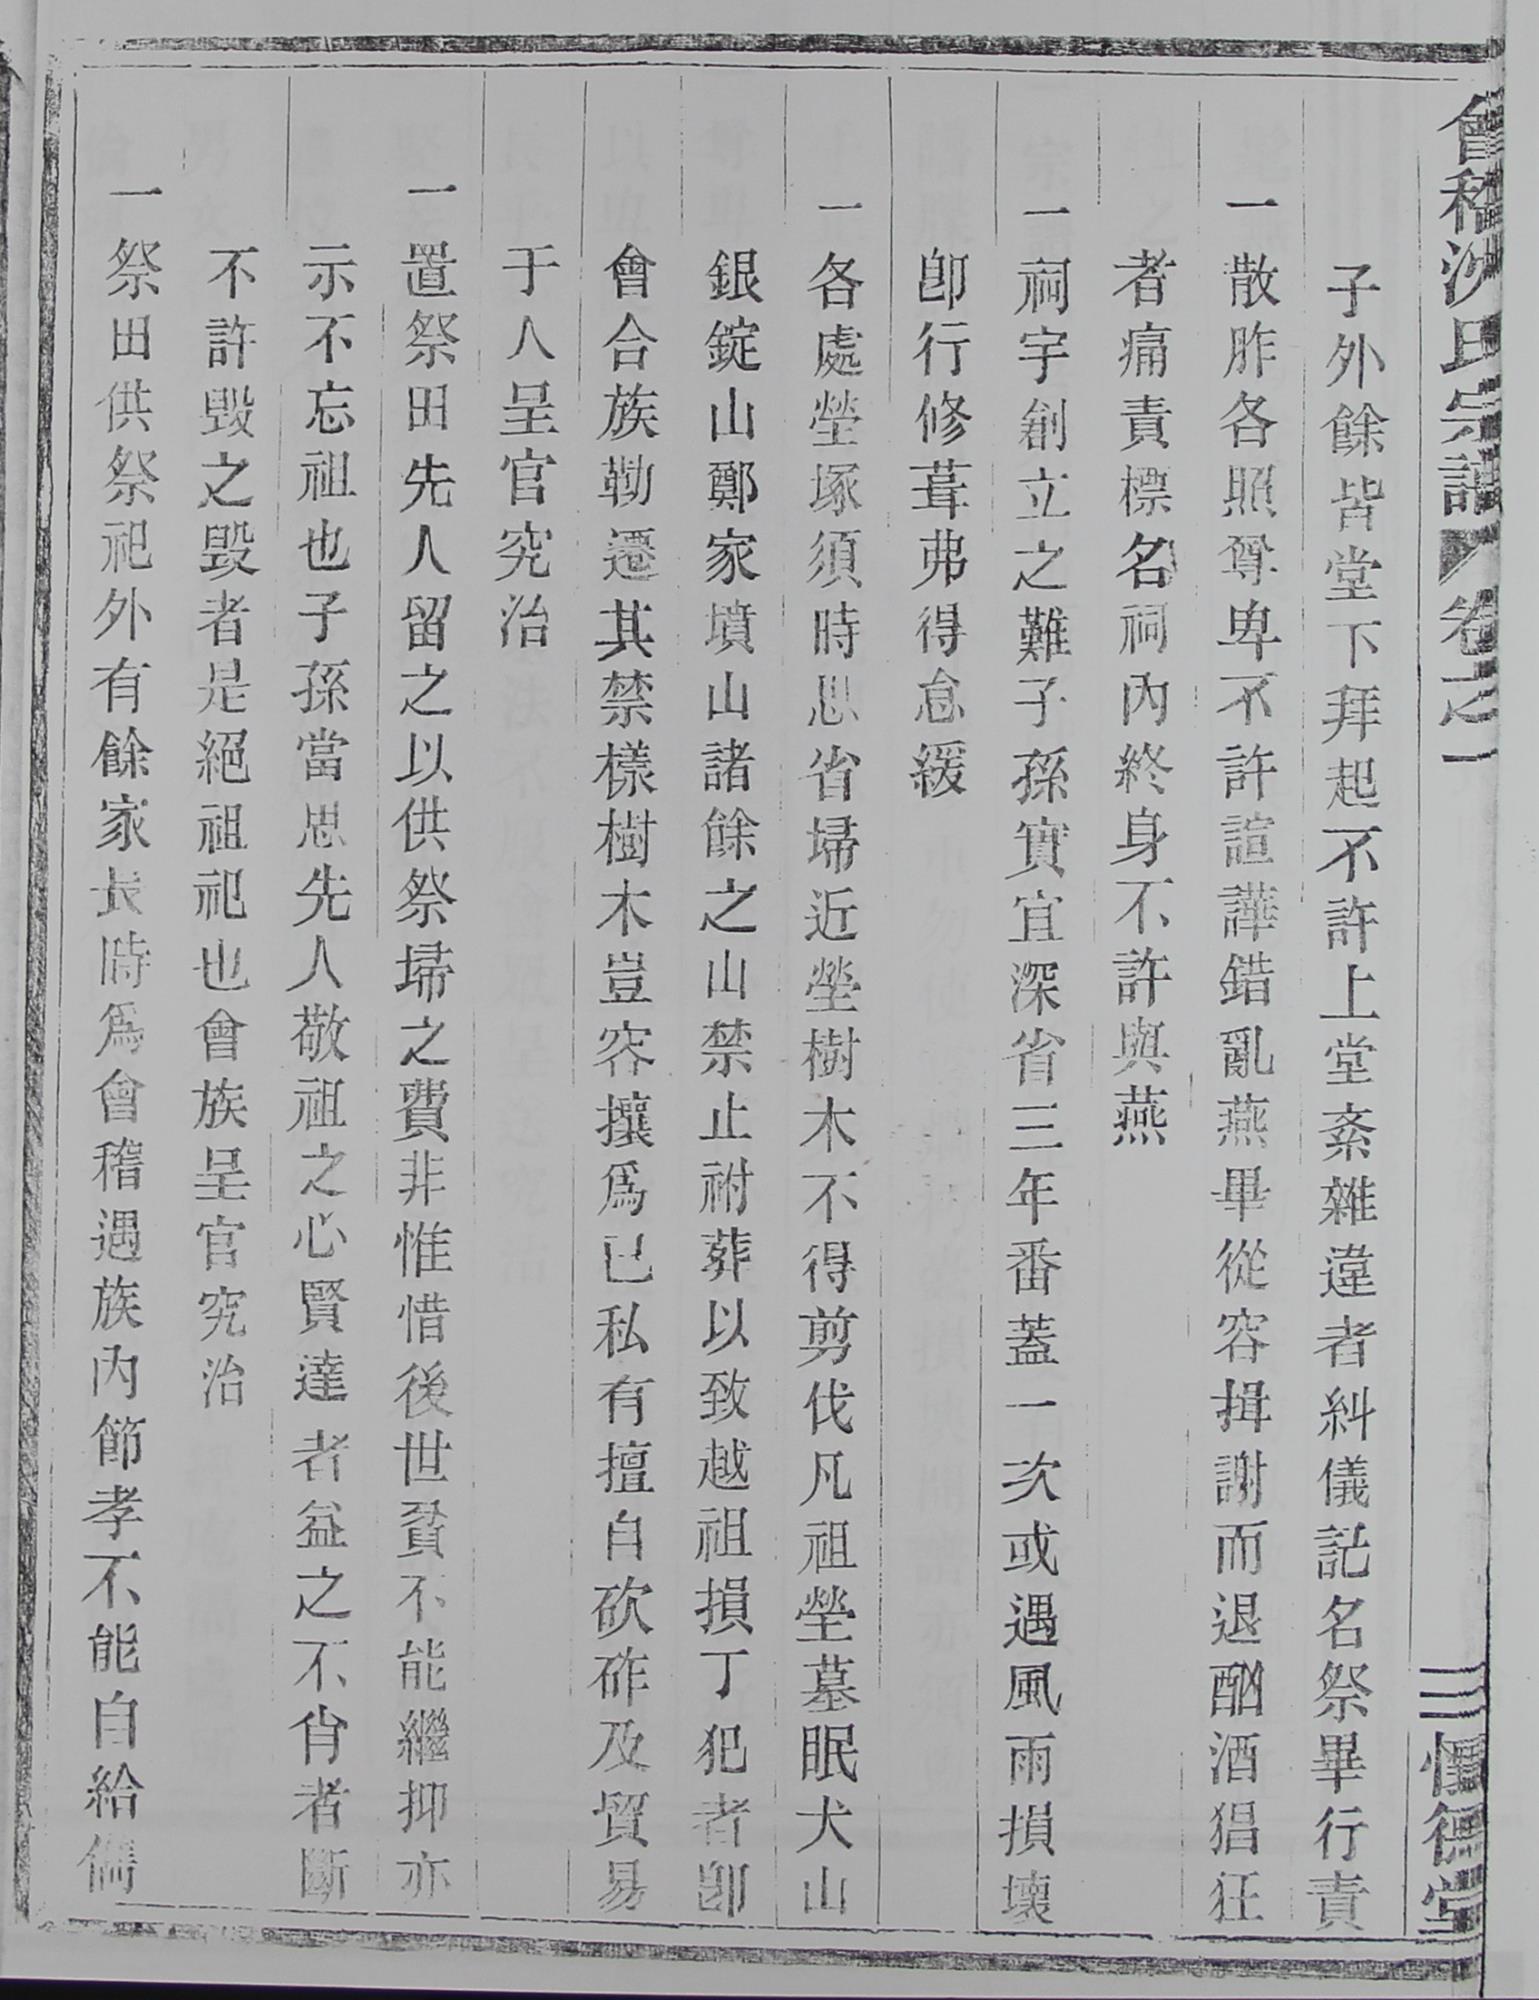 會稽沈氏宗譜 卷之一 三 慎德堂
子外餘皆堂下拜起不許上堂紊雜違者糾儀記名祭畢行責
一散胙各照尊卑不許諠譁錯亂燕畢從容揖謝而退酗酒猖狂
者痛責標名祠內終身不許與燕
一祠宇創立之難子孫實宜深省三年番蓋一次或遇風雨損壞
卽行修葺弗得怠緩
一各處塋塚須時思省埽近塋樹木不得剪伐凡祖塋墓眠犬山
銀錠山鄭家墳山諸餘之山禁止祔葬以致越祖損丁犯者卽
會合族勒遷其禁樣樹木豈容攘爲已私有擅自砍砟及貿易
于人呈官究治
一置祭田先人留之以供祭埽之費非惟惜後世貧不能繼抑亦
示不忘祖也子孫當思先人敬祖之心賢達者益之不肖者斷
不許毀之毀者是絕祖祀也會族呈官究治
一祭田供祭祀外有餘家長時爲會稽遇族內節孝不能自給儁